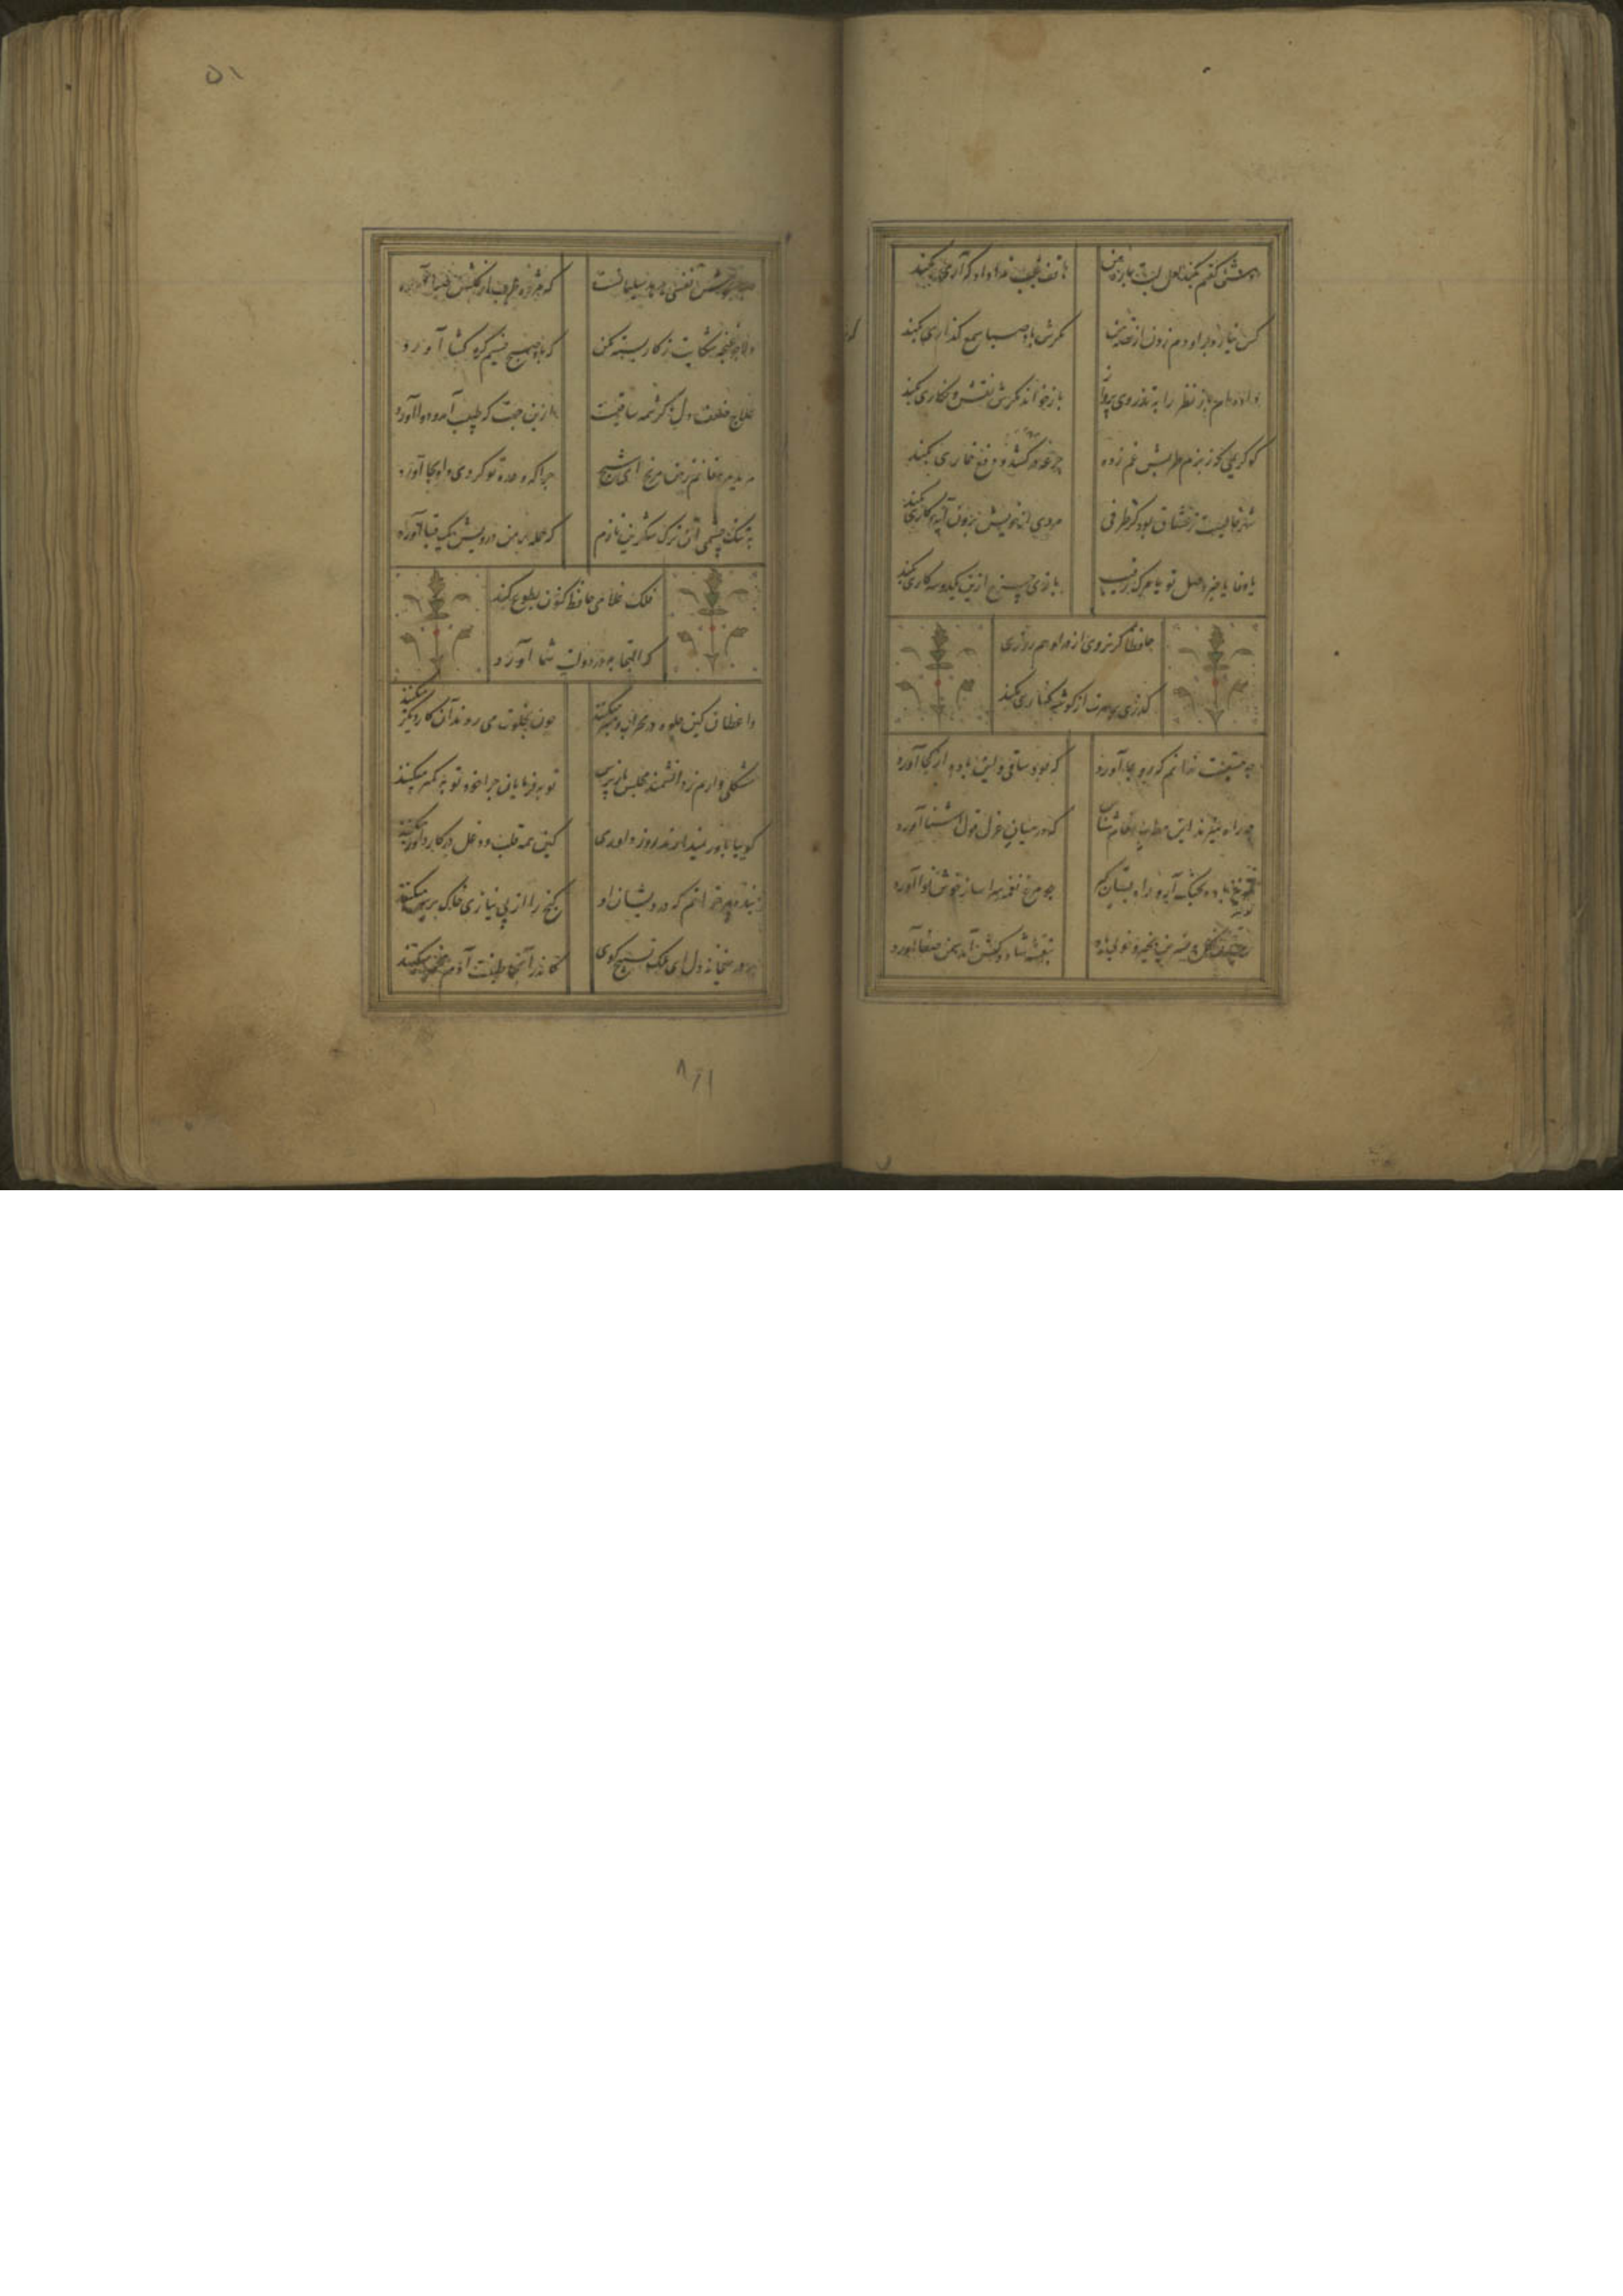 دوش گفتم بکند لعل لبش چاره من هاتف غیب ندا داد که آری بکند
کس نیارد بر او دم زدن از قصه من مگرش باد صبا سمع گذاری بکند
داده ام باز نظر را به تذروی پرواز باز خواند مگرش نقش و نگاری بکند
کو کریمی که ز بزم طربش غم زده جرعه در کشد و دفع خماری بکند
شهر خالیست ز عشاق بود کز طرفی مردی از خویش برون آید و کاری بکند
یا وفا یا خبر وصل تو یا مرگ رقیب بازی چرخ ازین یکدوسه کاری بکند
حافظا گر نروی از در او هم روزی
گذری بر سرت از گوشه کناری بکند
چه مستیست ندانم که رو بما آورد که بود ساقی و این باده از کجا آورد
چه راه میزند این مطرب مقام شناس که در میان غزل قول آشنا آورد
تو نیز باده بچنگ آر و راه بستان گیر چو مرغ نغمه سرا ساز خوش نوا آورد
گل و نسرین بخیر و خوبی باد بنفشه شاد و کش آمد سمن صفا آورد
۵۱
خوش نفسی هدهد سلیمانست که مژده طرب از گلشن سبا آورد
دلا چو غنچه شکایت ز کار بسته مکن که باد صبح نسیم گره گشا آورد
علاج ضعف دل کرشمه ساقیست ازین جهت که طبیب آمد و دوا آورد
مرید پیر مغانم ز من مرنج ای شیخ چرا که وعده تو کردی و او بجا آورد
به تنگ چشمی آن ترک لشکری نازم که حمله بر من درویش یک قبا آورد
فلک غلامی حافظ کنون بطوع کند
که التجا بدر دولت شما آورد
واعظان کین جلوه در محراب و منبر میکنند چون بخلوت می روند آن کار دیگر میکنند
مشکلی دارم ز دانشمند مجلس باز پرس توبه فرمایان چرا خود توبه کمتر میکنند
گوییا باور نمیدارند روز داوری کین همه قلب و دغل در کار داور میکنند
بنده پیر خراباتم که درویشان او گنج را از بی نیازی خاک بر سر میکنند
بر در میخانه دل ای ملک تسبیح گوی کاندر آنجا طینت آدم مخمر میکنند